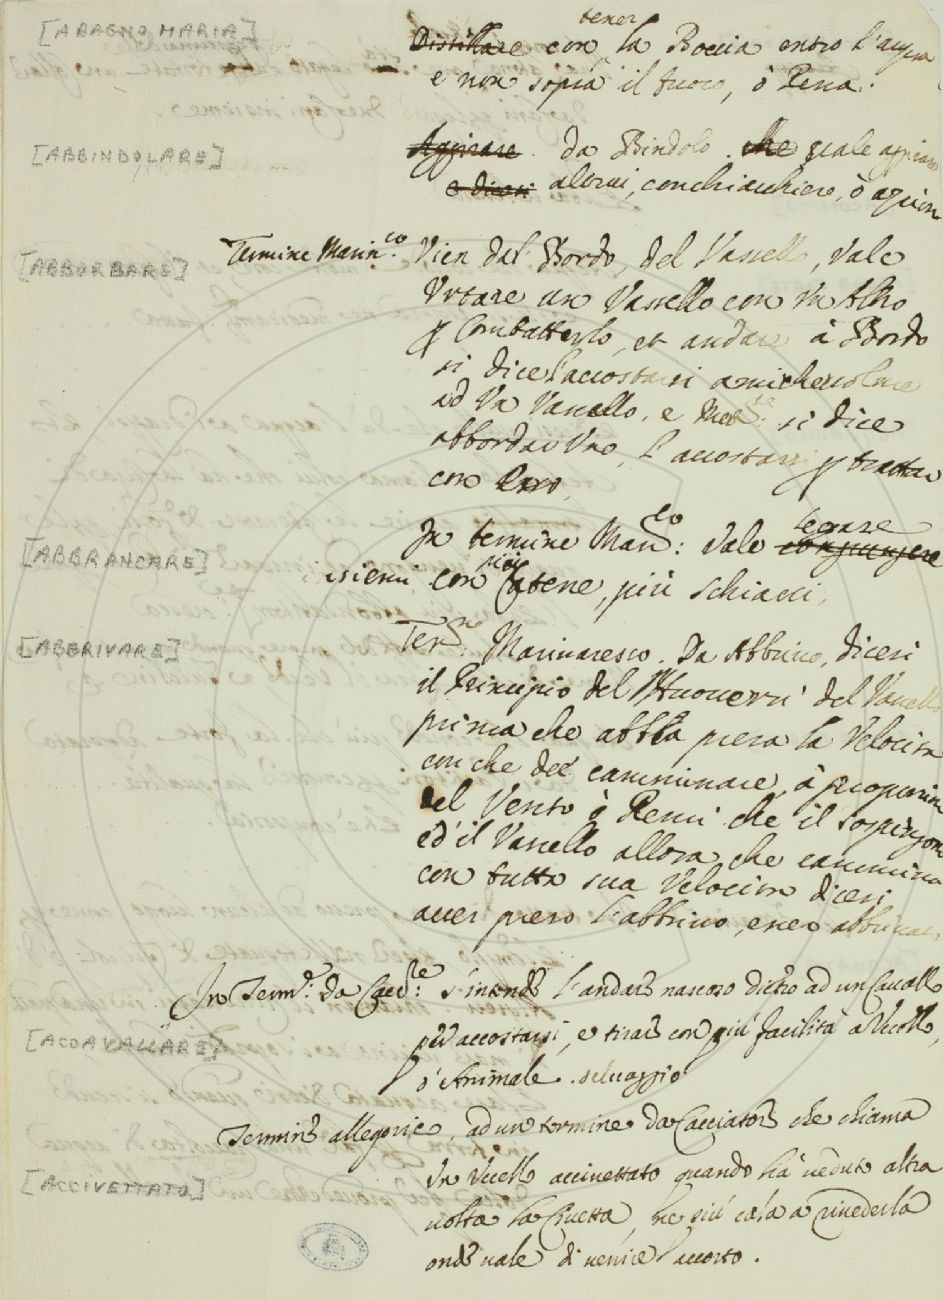 [A BAGNO MARIA]
tener
Distillare con la Boccia entro l'acqua
e non sopra il fuoco, ò Rena.
[ABBINDOLARE]
Aggirare. da Bindolo. che quale aggirare
e dicesi altrui, con chiacchiere, ò
[ABBORBARE]
Termine Marin.co Vien dal Bordo, del Vassello, Vale
Urtare un Vassello con Un Altro
p Combatterlo, et andare à Bordo
si dice l'accostarsi amichevolmte
ad Un Vassello. e Met.te: si dice
abbordar Uno, l'accostarsi p trattar
con Esso.
[ABBRANCARE]
In termine Marco: Vale legare
congiungere
insiemi con Catene, più Schiavi.
[ABBRIVARE]
Terne: Marinaresco. Da Abbrivo, dicesi
il Principio del Muoversi del Vassello
prima che abbia presa la Velocità
con che dee camminare, à proporzion
del Vento ò Remi che il sospingono
ed il Vassello allora che cammina
con tutta sua Velocità dicesi
aver preso l'abbrivo, esser abbrivato.
[ACCAVALLARE]
In Term.e da Cacc.re: s'intende l'andare nascoso dietro ad un Cavallo
per accostarsi, e tirare con più facilità a Vcello,
ò Animale selvaggio
[ACCIVETTATO]
Termine allegorico, ad un termine da Cacciatore che chiama
Un Vcello accivettato quando hà veduto altra
volta la Civetta, ne più cala a rivederla
onde vale di venire accorto.